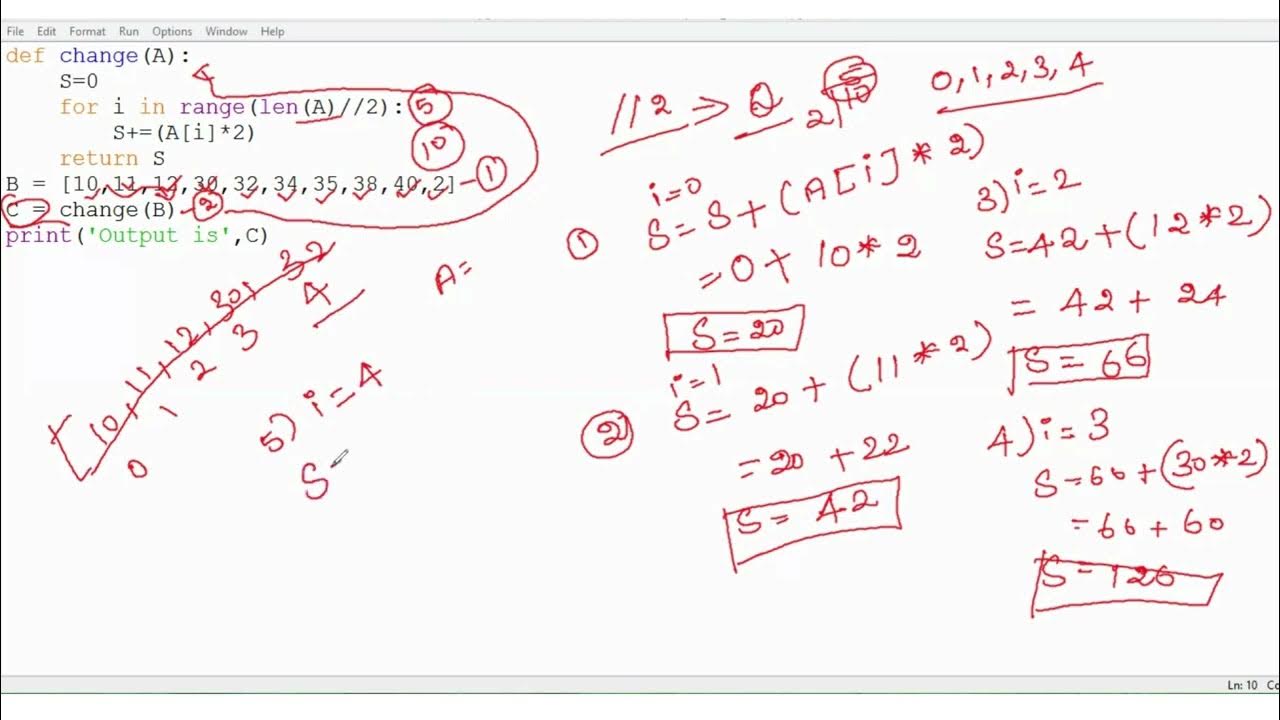 File Edit Format Run Options Window Help
def change(A):
S=0
for i in range(len(A)//2):
S+=(A[i]*2)
return S
B = [10,11,12,30,32,34,35,38,40,2]
C = change(B)
print('Output is',C)
5
10
1
2
//2 => Q
2
10
0,1,2,3,4
A=
10 11 12 30 32
0 1 2 3 4
5) i=4
S
1
i=0
S=S+(A[i]*2)
=0+10*2
S=20
2
i=1
S=20+(11*2)
=20+22
S=42
3) i=2
S=42+(12*2)
=42+24
S=66
4) i=3
S=66+(30*2)
=66+60
S=126
Ln: 10